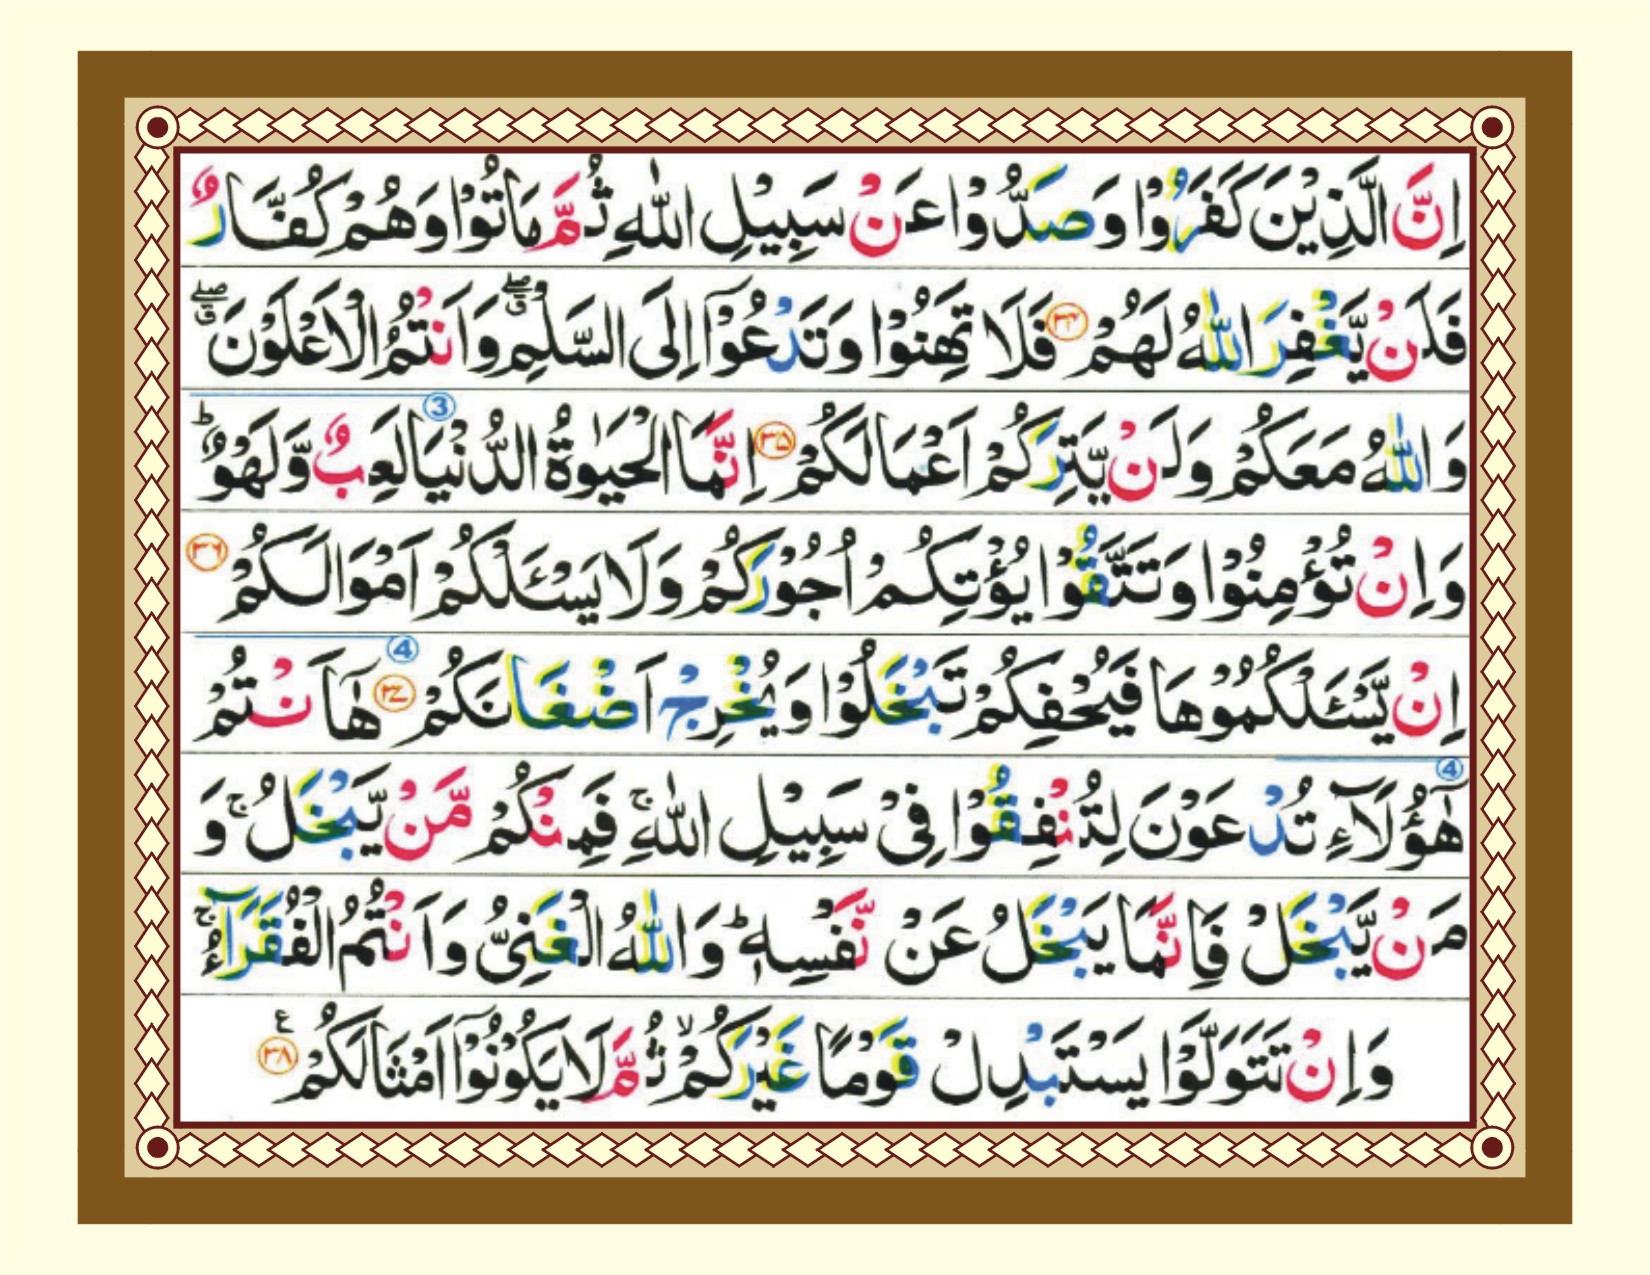 اِنَّ الَّذِيْنَ كَفَرُوْا وَصَدُّوْا عَنْ سَبِيْلِ اللّٰهِ ثُمَّ مَاتُوْا وَهُمْ كُفَّارٌ
فَلَنْ يَّغْفِرَ اللّٰهُ لَهُمْ ۳۴ فَلَا تَهِنُوْا وَتَدْعُوْٓا اِلَى السَّلْمِ ۖۗ وَاَنْتُمُ الْاَعْلَوْنَ ۖۗ
وَاللّٰهُ مَعَكُمْ وَلَنْ يَّتِرَكُمْ اَعْمَالَكُمْ ۳۵ اِنَّمَا الْحَيٰوةُ الدُّنْيَا لَعِبٌ وَّلَهْوٌ ؕ
3
وَاِنْ تُؤْمِنُوْا وَتَتَّقُوْا يُؤْتِكُمْ اُجُوْرَكُمْ وَلَا يَسْـَٔلْكُمْ اَمْوَالَكُمْ ۳۶
اِنْ يَّسْـَٔلْكُمُوْهَا فَيُحْفِكُمْ تَبْخَلُوْا وَيُخْرِجْ اَضْغَانَكُمْ ۳۷ هٰٓاَنْتُمْ
4
هٰٓؤُلَآءِ تُدْعَوْنَ لِتُنْفِقُوْا فِيْ سَبِيْلِ اللّٰهِ ۚ فَمِنْكُمْ مَّنْ يَّبْخَلُ ۚ وَ
4
مَنْ يَّبْخَلْ فَاِنَّمَا يَبْخَلُ عَنْ نَّفْسِهٖ ؕ وَاللّٰهُ الْغَنِيُّ وَاَنْتُمُ الْفُقَرَآءُ ۚ
وَاِنْ تَتَوَلَّوْا يَسْتَبْدِلْ قَوْمًا غَيْرَكُمْ ۙ ثُمَّ لَا يَكُوْنُوْٓا اَمْثَالَكُمْ ۳۸ ع